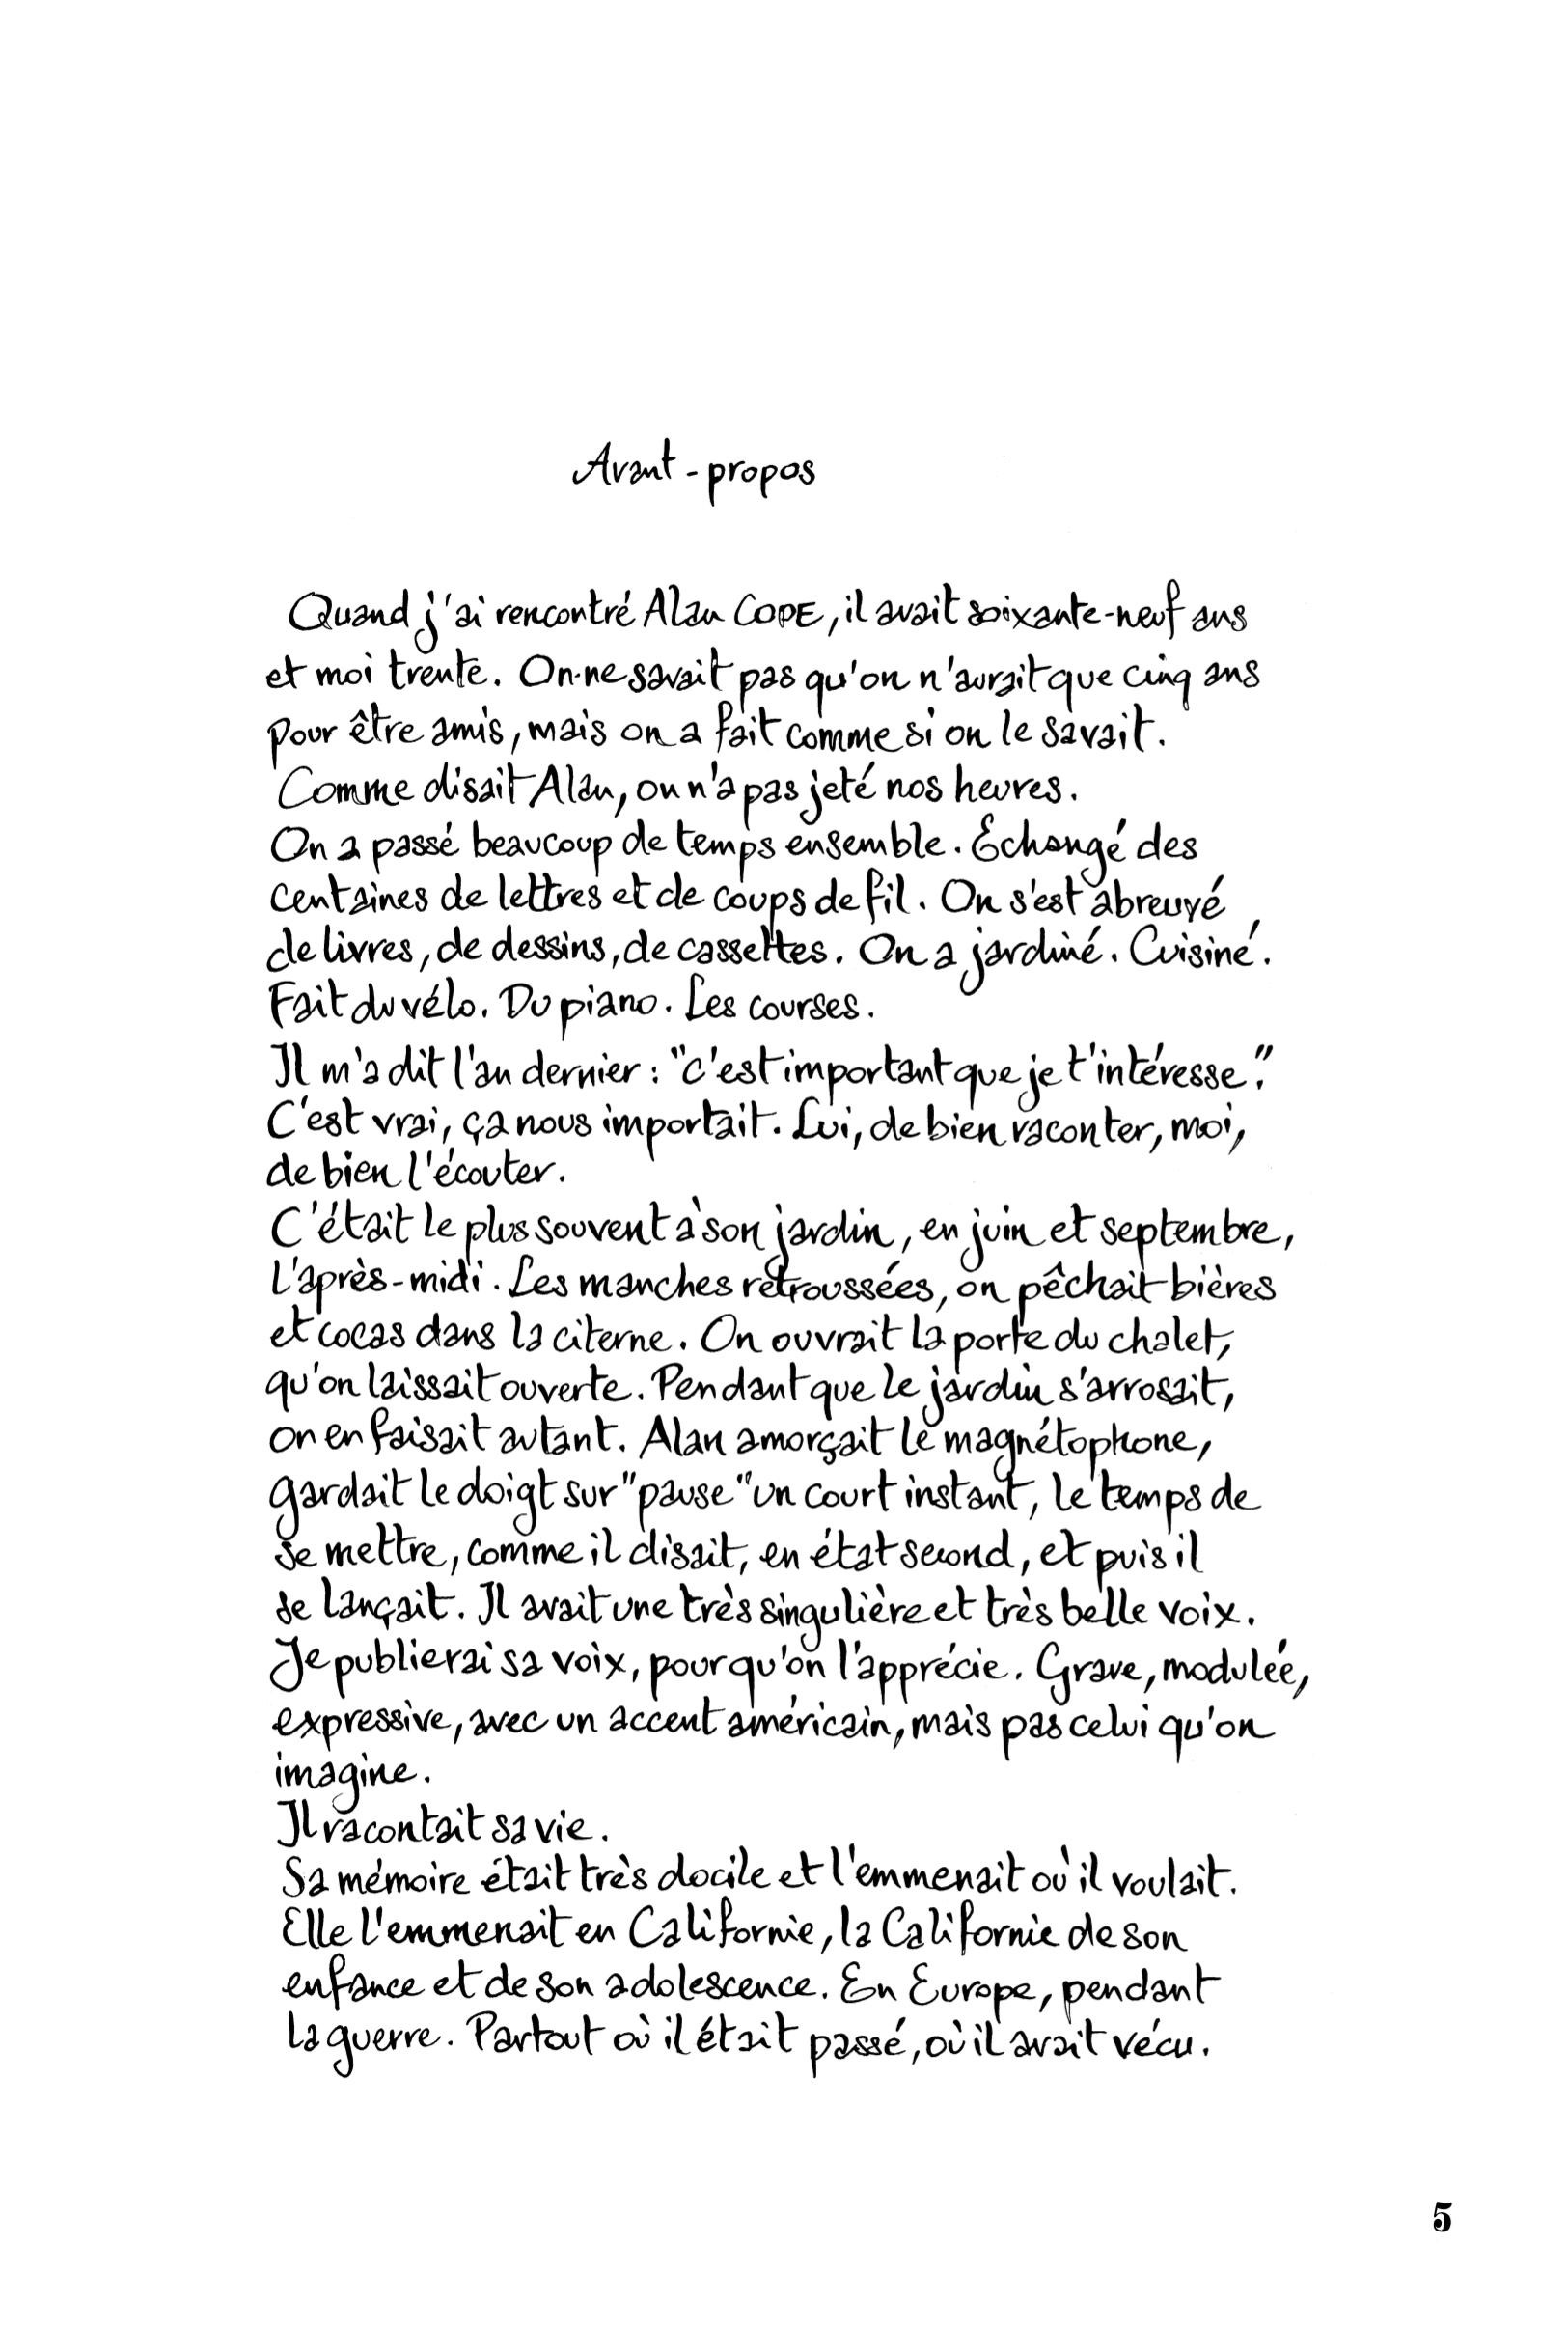 Avant-propos
Quand j'ai rencontré Alan COPE, il avait soixante-neuf ans
et moi trente. On ne savait pas qu'on n'aurait que cinq ans
pour être amis, mais on a fait comme si on le savait.
Comme disait Alan, on n'a pas jeté nos heures.
On a passé beaucoup de temps ensemble. Échangé des
centaines de lettres et de coups de fil. On s'est abreuvé
de livres, de dessins, de cassettes. On a jardiné. Cuisiné.
Fait du vélo. Du piano. Les courses.
Il m'a dit l'an dernier : "c'est important que je t'intéresse."
C'est vrai, ça nous importait. Lui, de bien raconter, moi,
de bien l'écouter.
C'était le plus souvent à son jardin, en juin et septembre,
l'après-midi. Les manches retroussées, on pêchait bières
et cocas dans la citerne. On ouvrait la porte du chalet,
qu'on laissait ouverte. Pendant que le jardin s'arrosait,
on en faisait autant. Alan amorçait le magnétophone,
gardait le doigt sur "pause" un court instant, le temps de
se mettre, comme il disait, en état second, et puis il
se lançait. Il avait une très singulière et très belle voix.
Je publierai sa voix, pour qu'on l'apprécie. Grave, modulée,
expressive, avec un accent américain, mais pas celui qu'on
imagine.
Il racontait sa vie.
Sa mémoire était très docile et l'emmenait où il voulait.
Elle l'emmenait en Californie, la Californie de son
enfance et de son adolescence. En Europe, pendant
la guerre. Partout où il était passé, où il avait vécu.
5